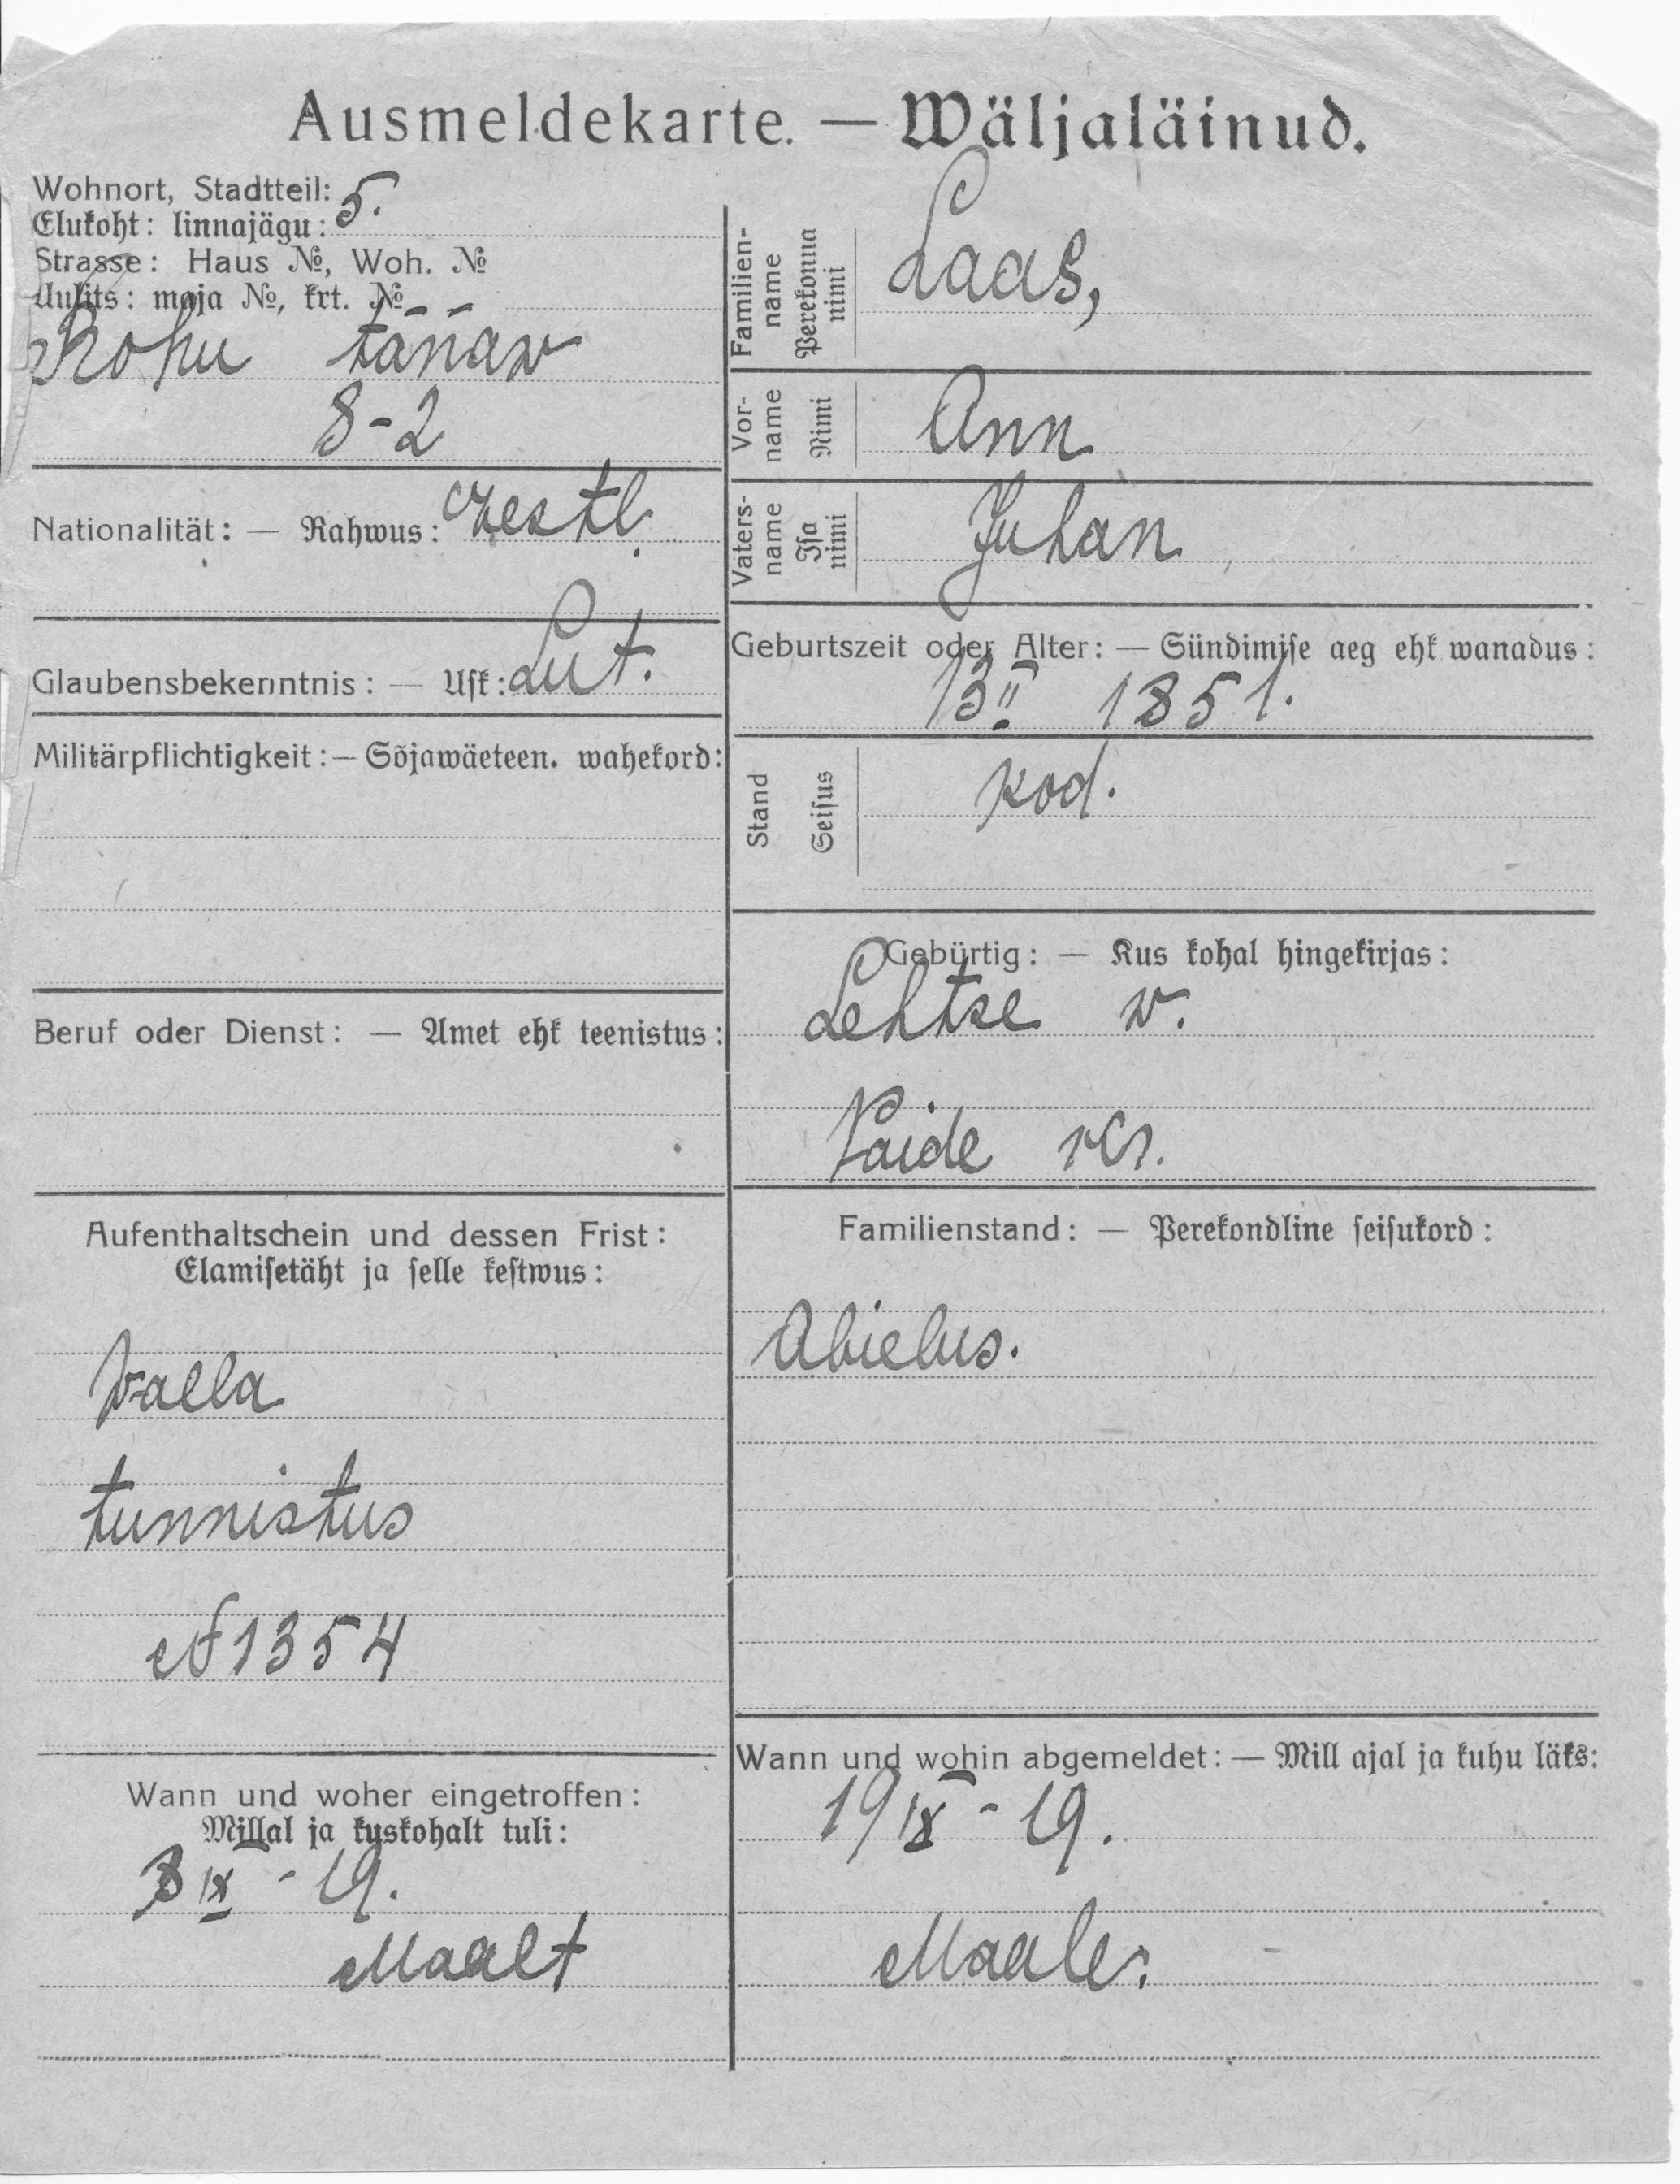 Ausmeldekarte. — Wäljaläinud.
Wohnort, Stadtteil:
Elukoht: linnajägu: 5.
Strasse: Haus №, Woh. №
Uulits: maja №, krt. №
Rohu tänaw
8-2
Nationalität: — Rahwus: eestl.
Glaubensbekenntnis: — Usk: Lut.
Militärpflichtigkeit: — Sõjawäeteen. wahekord:
Beruf oder Dienst: — Amet ehk teenistus:
Aufenthaltschein und dessen Frist:
Elamisetäht ja selle kestwus:
Valla
tunnistus
№ 1354
Wann und woher eingetroffen:
Millal ja kuskohalt tuli:
3 IX - 19.
Maalt
Familien-
name
Perekonna
nimi
Laas,
Vor-
name
Nimi
Ann
Vaters-
name
Isa
nimi
Juhan
Geburtszeit oder Alter: — Sündimise aeg ehk wanadus:
13 II 1851.
Stand
Seisus
kod.
Gebürtig: — Kus kohal hingekirjas:
Lehtse w.
Paide kr.
Familienstand: — Perekondline seisukord:
Abielus.
Wann und wohin abgemeldet: — Mill ajal ja kuhu läks:
19 IX - 19.
Maale.